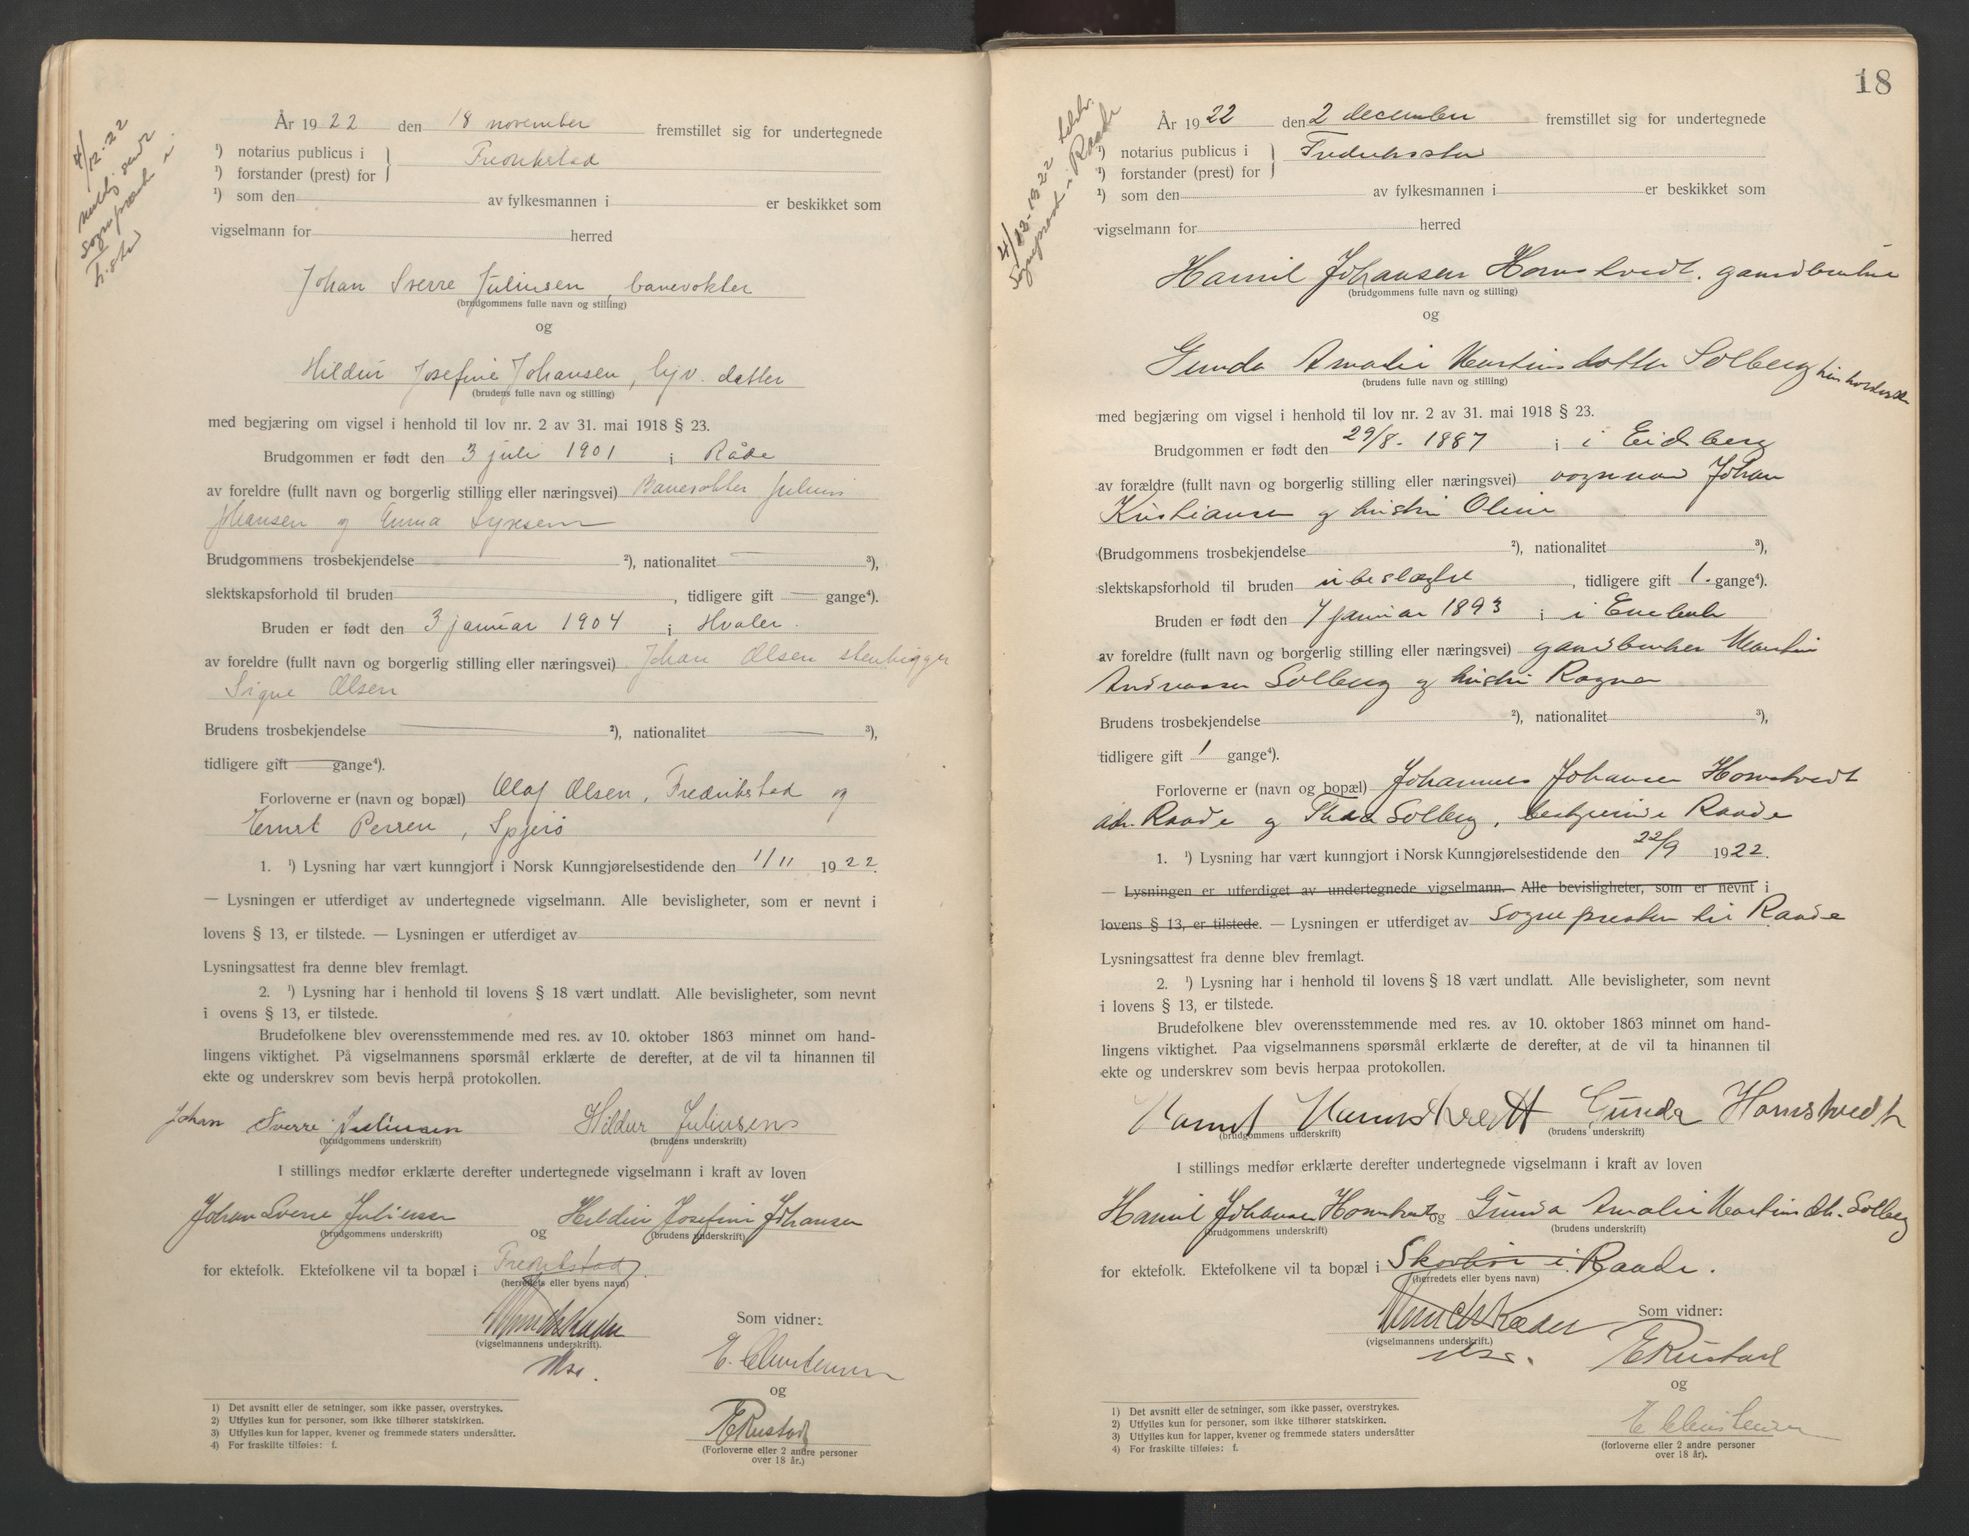 4/12-22
sendt
sogneprest i
År 1922 den 18 november fremstillet sig for undertegnede
¹) notarius publicus i } Fredrikstad
¹) forstander (prest) for
¹) som den av fylkesmannen i er beskikket som
vigselmann for herred
Johan Sverre Juliusen, banevokter
(brudgommens fulle navn og stilling)
og
Hildur Josefine Johansen, hjv. datter
(brudens fulle navn og stilling)
med begjæring om vigsel i henhold til lov nr. 2 av 31. mai 1918 § 23.
Brudgommen er født den 3 juli 1901 i Råde
av foreldre (fullt navn og borgerlig stilling eller næringsvei) Banevokter Julius
Johansen og Anna
Brudgommens trosbekjendelse ²), nationalitet ³),
slektskapsforhold til bruden , tidligere gift gange⁴).
Bruden er født den 3 januar 1904 i Hvaler.
av foreldre (fullt navn og borgerlig stilling eller næringsvei) Johan Olsen stenhugger
Signe Olsen
Brudens trosbekjendelse ²), nationalitet ³),
tidligere gift gange⁴).
Forloverne er (navn og bopæl) Olaf Olsen, Fredrikstad og
Ernst , Spjerø
1. ¹) Lysning har vært kunngjort i Norsk Kunngjørelsestidende den 1/11 1922.
— Lysningen er utferdiget av undertegnede vigselmann. Alle bevisligheter, som er nevnt i
lovens § 13, er tilstede. — Lysningen er utferdiget av
Lysningsattest fra denne blev fremlagt.
2. ¹) Lysning har i henhold til lovens § 18 vært undlatt. Alle bevisligheter, som nevnt
i ovens § 13, er tilstede.
Brudefolkene blev overensstemmende med res. av 10. oktober 1863 minnet om hand-
lingens viktighet. På vigselmannens spørsmål erklærte de derefter, at de vil ta hinannen til
ekte og underskrev som bevis herpå protokollen.
Johan Sverre Juliusen Hildur Juliusen
(brudgommens underskrift) (brudens underskrift)
I stillings medfør erklærte derefter undertegnede vigselmann i kraft av loven
Johan Sverre Juliussen og Hildur Josefine Johansen
(brudgommens underskrift) (brudens underskrift)
for ektefolk. Ektefolkene vil ta bopæl i Fredrikstad.
(herredets eller byens navn)
(vigselmannens underskrift).
Som vidner:
E. Christensen
og
E Rustad
(Forloverne eller 2 andre personer
over 18 år.)
1) Det avsnitt eller de setninger, som ikke passer, overstrykes.
2) Utfylles kun for personer, som ikke tilhører statskirken.
3) Utfylles kun for lapper, kvener og fremmede staters undersåtter.
4) For fraskilte tilføies: f.
18
4/12-1922
Sogneprest i Raade
År 1922 den 2 december fremstillet sig for undertegnede
¹) notarius publicus i } Fredriksstad
¹) forstander (prest) for
¹) som den av fylkesmannen i er beskikket som
vigselmann for herred
Hamil Johansen Hornstvedt. gaardbruker
(brudgommens fulle navn og stilling)
og
Gunda Amalie Martinsdatter Solberg husholderske
(brudens fulle navn og stilling)
med begjæring om vigsel i henhold til lov nr. 2 av 31. mai 1918 § 23.
Brudgommen er født den 29/8-1887 i i Eidsberg
av forældre (fullt navn og borgerlig stilling eller næringsvei) Johan
Kristiansen og hustru Oline
(Brudgommens trosbekjendelse ²), nationalitet ³),
slektskapsforhold til bruden ubeslægtet , tidligere gift 1. gange⁴).
Bruden er født den 7 januar 1893 i i Enebak
av foreldre (fullt navn og borgerlig stilling eller næringsvei) gaardbruker Martin
Andreassen Solberg og hustru Ragna
Brudens trosbekjendelse ²), nationalitet ³),
tidligere gift 1 gange⁴).
Forloverne er (navn og bopæl) Johannes Johansen Hornstvedt
adr. Raade og Solberg, Raade
1. ¹) Lysning har vært kunngjort i Norsk Kunngjørelsestidende den 22/9 1922.
— Lysningen er utferdiget av undertegnede vigselmann. Alle bevisligheter, som er nevnt i
lovens § 13, er tilstede. — Lysningen er utferdiget av Sognepresten til Raade
Lysningsattest fra denne blev fremlagt.
2. ¹) Lysning har i henhold til lovens § 18 vært undlatt. Alle bevisligheter, som nevnt
i lovens § 13, er tilstede.
Brudefolkene blev overensstemmende med res. av 10. oktober 1863 minnet om hand-
lingens viktighet. Paa vigselmannens spørsmål erklærte de derefter, at de vil ta hinannen til
ekte og underskrev som bevis herpaa protokollen.
Hamil Gunda Hornstvedt
(brudgommens underskrift) (brudens underskrift)
I stillings medfør erklærte derefter undertegnede vigselmann i kraft av loven
Hamil Johansen Hornstvedt og Gunda Amalie Martinsdtr. Solberg
(brudgommens underskrift) (brudens underskrift)
for ektefolk. Ektefolkene vil ta bopæl i i Raade.
(herredets eller byens navn)
(vigselmannens underskrift.)
Som vidner:
E Rustad
og
E Christensen
(forloverne eller 2 andre personer
over 18 år).
1) Det avsnitt eller de setninger, som ikke passer, overstrykes.
2) Utfylles kun for personer, som ikke tilhører statskirken.
3) Utfylles kun for lapper, kvener og fremmede staters undersåtter
4) For fraskilte tilføies: f.